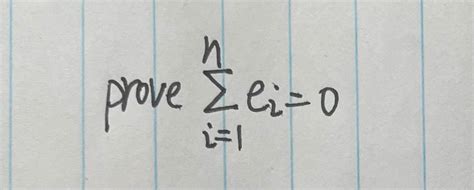 prove \sum_{i=1}^{n} e_i = 0